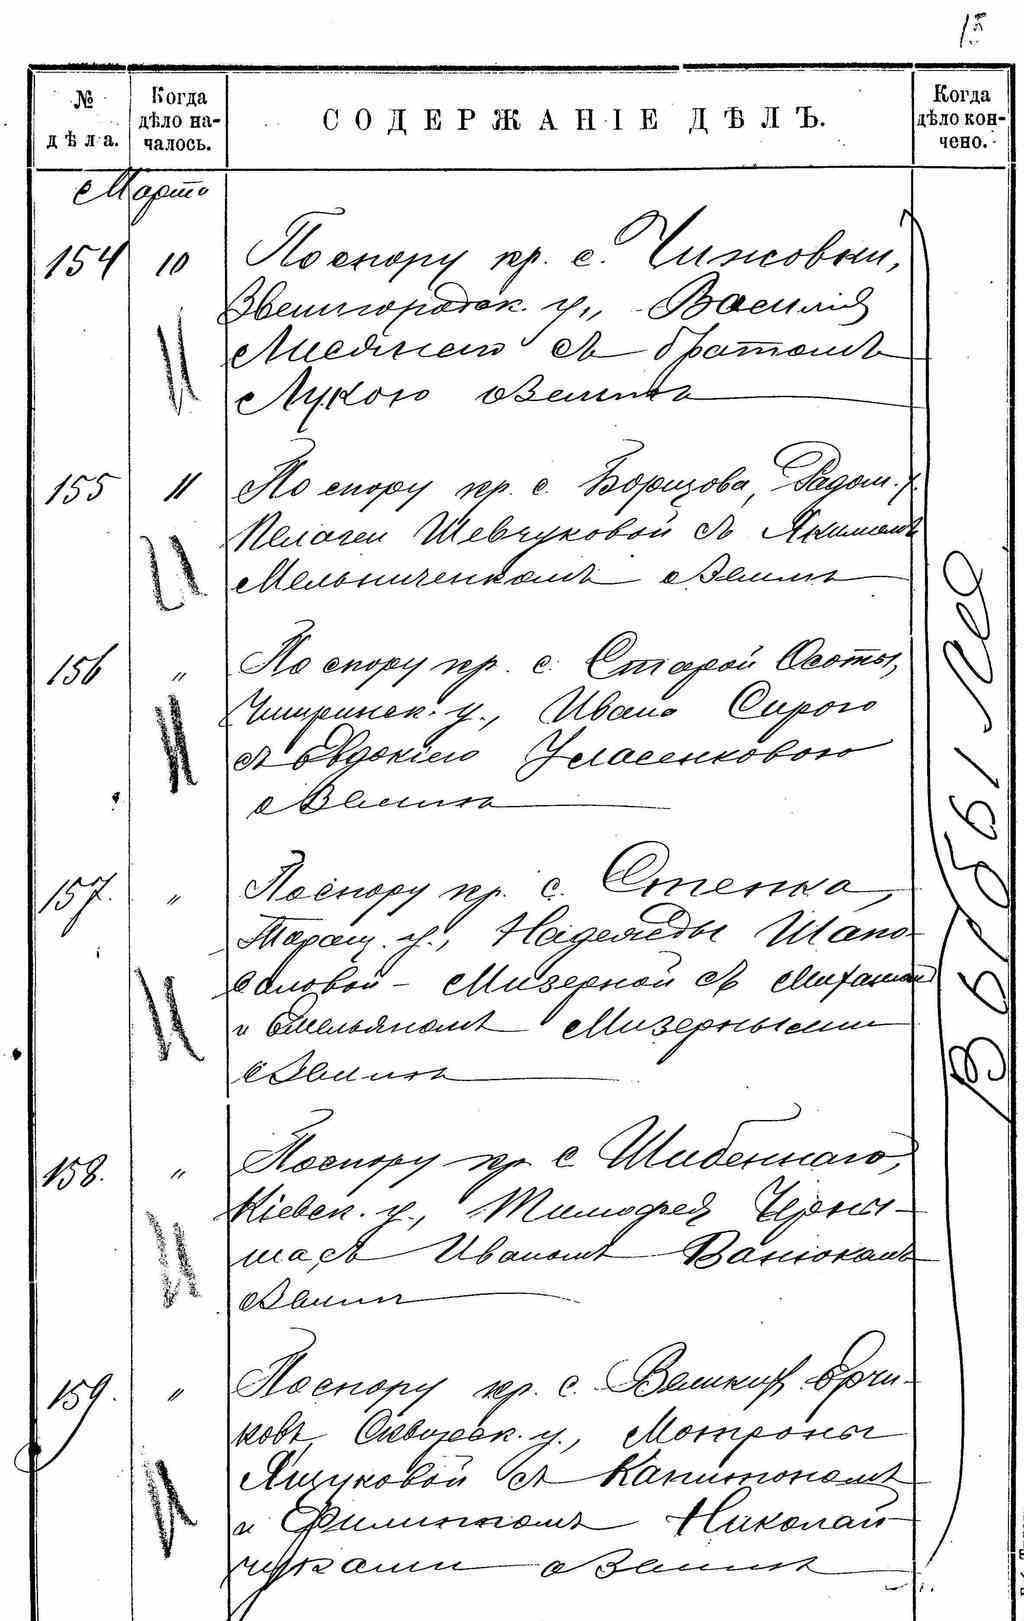 15
№ дѣла.
Когда дѣло на-чалось.
СОДЕРЖАНІЕ ДѢЛЪ.
Когда дѣло кон-чено.
Марта
154 10 По спору кр. с. Чижовки,
Звенигородск. у., Василія
Лисянскаго съ братомъ
Лукою о землѣ
155 11 По спору кр. с. Борщова, Радом. у.
Пелагеи Шевчуковой съ Якимомъ
Мельниченкомъ о землѣ
156 „ По спору кр. с. Старой Осоты,
Чигиринск. у., Ивана Сираго
съ Евдокіею Уласенковою
о землѣ
157. „ По спору кр. с. Стенка,
Таращ. у., Надежды Шапо-
валовой - Мизерной съ Михаиломъ
и Емельяномъ Мизерными
о землѣ
158. „ По спору кр. с. Шибеннаго,
Кіевск. у., Тимофея Черны-
ша съ Иваномъ Ванюкомъ
о землѣ
159. „ По спору кр. с. Великихъ Ерчи-
ковъ, Сквирск. у., Мотроны
Ящуковой съ Капитономъ
и Филиппомъ Николай-
чуками о землѣ
Выбыли